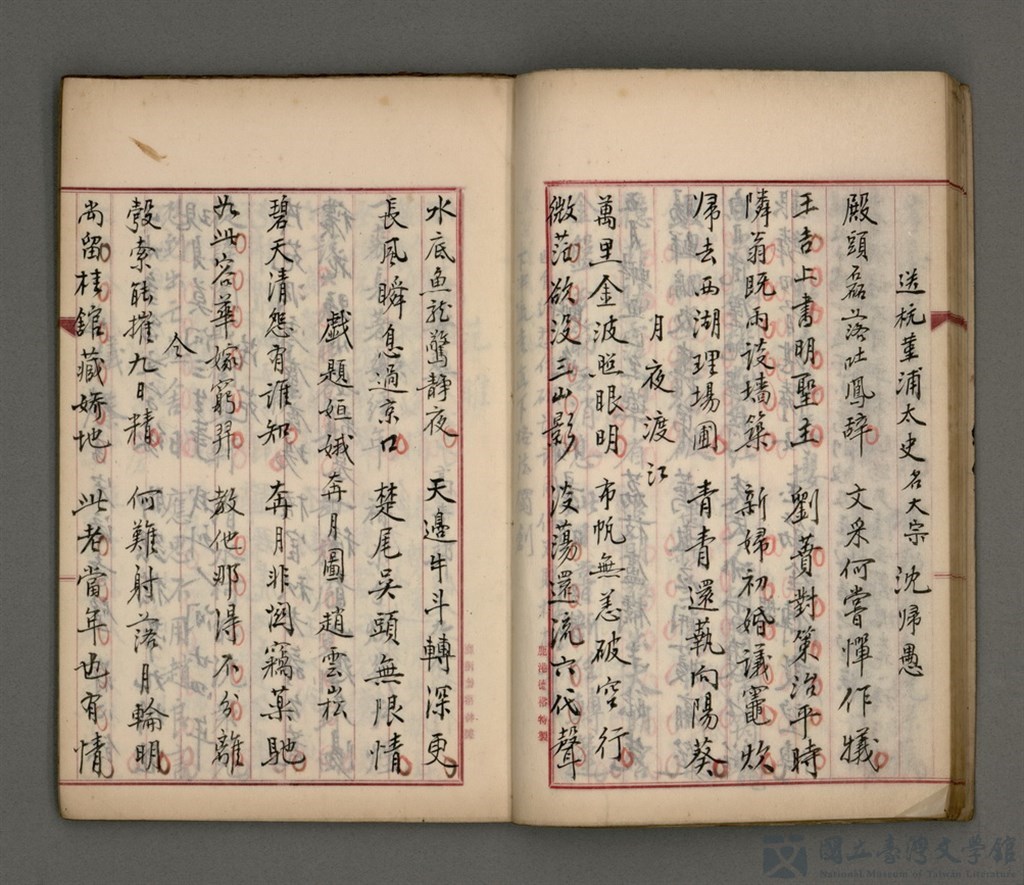 送杭堇浦太史名大宗 沈帰愚
殿頭磊落吐鳳辭 文采何嘗憚作犠
王吉上書明聖主 劉蕡對策治平時
隣翁既雨談墻築 新婦初婚議竈炊
帰去西湖理場圃 青青還執向陽葵
月夜渡江
萬里金波照眼明 布帆無恙破空行
微茫欲没三山影 浩蕩還流六代聲
水底魚龍驚静夜 天邊牛斗轉深更
長風瞬息過京口 楚尾吴頭無限情
戲題姮娥奔月圖 趙雲崧
碧天清怨有誰知 奔月非関竊藥馳
如此容華嫁窮羿 教他那得不分離
仝
彀索能摧九日精 何難射落月輪明
尚留桂舘藏嬌地 此老當年也有情
鹿港
國立臺灣文學館
National Museum of Taiwan Literature